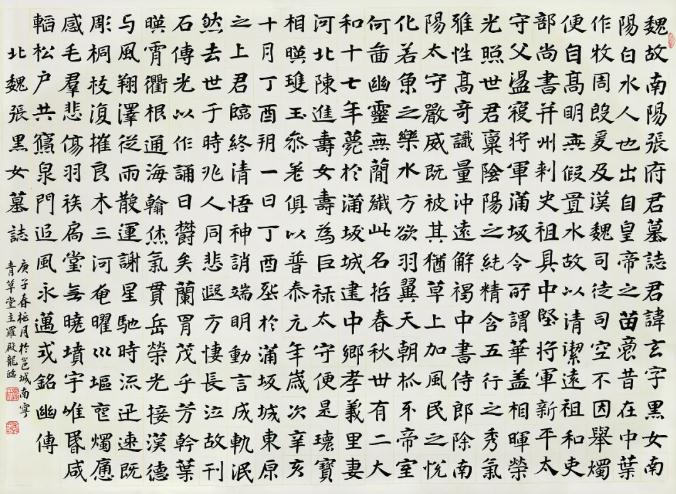 魏故南陽張府君墓誌君諱玄字黑女南
陽白水人也出自皇帝之苗裔昔在中葉
作牧周殷爰及漢魏司徒司空不因舉燭
便自高明無假置水故以清潔遠祖和吏
部尚書并州刾史祖具中堅將軍新平太
守父盪寇將軍蒲坂令所謂華蓋相暉榮
光照世君稟陰陽之純精含五行之秀氣
雅性高奇識量沖遠解褐中書侍郎除南
陽太守嚴威既被其猶草上加風民之悅
化若魚之樂水方欲羽翼天朝抓牙帝室
何啚幽靈無簡殲此名哲春秋卅有二大
和十七年薨於蒲坂城建中鄉孝義里妻
河北陳進壽女壽為巨祿太守便是瓌寶
相暎瓊玉參差俱以普泰元年歲次辛亥
十月丁酉朔一日丁酉塟於蒲坂城東原
之上君臨終清悟神誚端明動言成軌泯
然去世于時兆人同悲遐方悽長泣故刊
石傳光以作誦曰鬱矣蘭胄茂乎芳幹葉
暎霄衢根通海翰烋氣貫岳榮光接漢德
与風翔澤從雨散運謝星馳時流迅速既
彫桐枝復摧良木三河奄曜川塸喪燭痛
感毛羣悲傷羽族扃堂無曉墳宇唯昏咸
輼松戶共寢泉門追風永邁式銘幽傳
北魏張黑女墓誌
庚子春月於邕城南寧
青草堂主羅殿龍臨